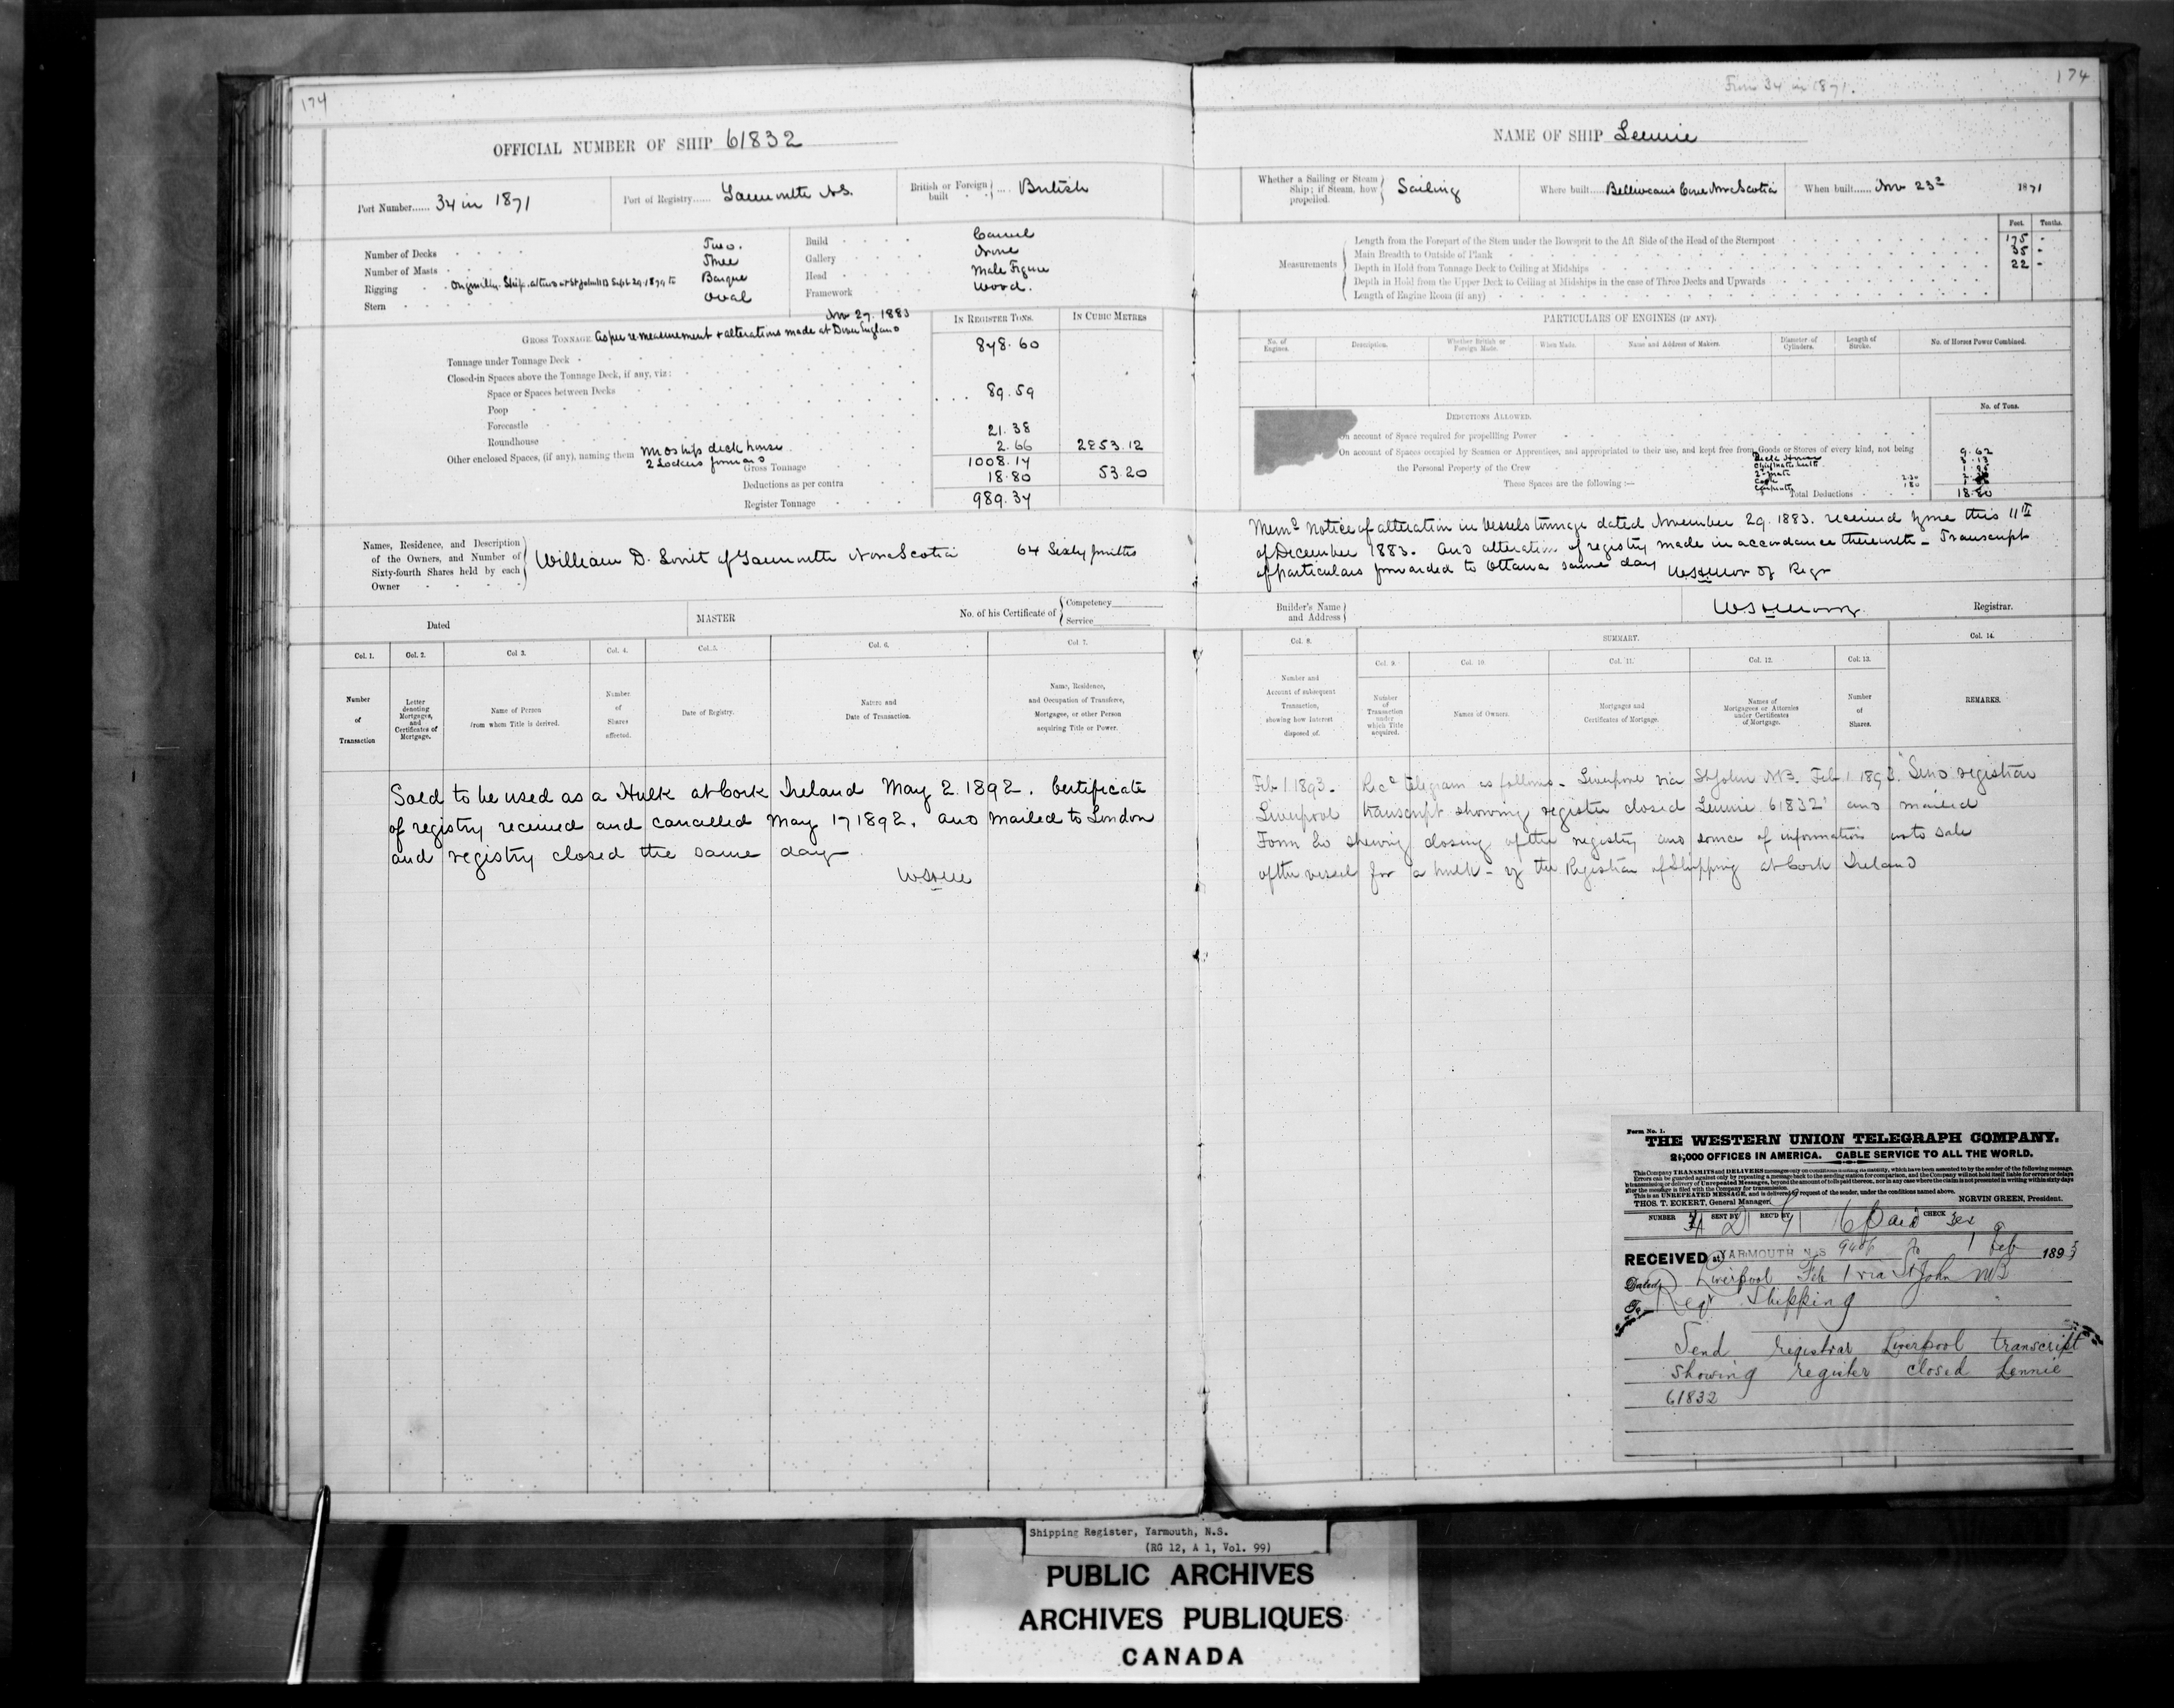 174
OFFICIAL NUMBER OF SHIP 61832
Port Number...... 34 in 1871
Port of Registry...... Yarmouth N.S.
British or Foreign built .... British
Number of Decks Two.
Number of Masts Three
Rigging Originally Ship. altered at St John NB Sept 29. 1879 to Barque
Stern Oval
Build Carvel
Gallery None
Head Male Figure
Framework Wood.
Nov 29. 1883
GROSS TONNAGE. As per remeasurement & alterations made at Dover England
IN REGISTER TONS.
IN CUBIC METRES
Tonnage under Tonnage Deck 898.60
Closed-in Spaces above the Tonnage Deck, if any, viz:
Space or Spaces between Decks
Poop 89.59
Forecastle
Roundhouse 21.38
Other enclosed Spaces, (if any), naming them Midships deck house
2 Lockers forward 2.66
Gross Tonnage 1008.14 2853.12
Deductions as per contra 18.80 53.20
Register Tonnage 989.34
Names, Residence, and Description of the Owners, and Number of Sixty-fourth Shares held by each Owner
William D. Lovit of Yarmouth Nova Scotia 64 Sixty fourths
Dated
MASTER
No. of his Certificate of Competency
Service
Col. 1. Col. 2. Col 3. Col. 4. Col. 5. Col. 6. Col. 7.
Number of Transaction
Letter denoting Mortgages, and Certificates of Mortgage.
Name of Person from whom Title is derived.
Number of Shares affected.
Date of Registry.
Nature and Date of Transaction.
Name, Residence, and Occupation of Transferee, Mortgagee, or other Person acquiring Title or Power.
Sold to be used as a Hulk at Cork Ireland May 2. 1892. Certificate
of registry received and cancelled May 17 1892. and mailed to London
and registry closed the same day
From 34 in 1871.
174
NAME OF SHIP Lennie
Whether a Sailing or Steam Ship; if Steam, how propelled. Sailing
Where built..... Belliveaus Cove Nova Scotia
When built...... Nov 23d 1871
Feet. Tenths.
Measurements
Length from the Forepart of the Stem under the Bowsprit to the Aft Side of the Head of the Sternpost 175 -
Main Breadth to Outside of Plank 35 -
Depth in Hold from Tonnage Deck to Ceiling at Midships 22 -
Depth in Hold from the Upper Deck to Ceiling at Midships in the case of Three Decks and Upwards
Length of Engine Room (if any)
PARTICULARS OF ENGINES (IF ANY).
No. of Engines.
Description.
Whether British or Foreign Made.
When Made.
Name and Address of Makers.
Diameter of Cylinders.
Length of Stroke.
No. of Horses Power Combined.
DEDUCTIONS ALLOWED.
No. of Tons.
On account of Space required for propelling Power
On account of Spaces occupied by Seamen or Apprentices, and appropriated to their use, and kept free from Goods or Stores of every kind, not being
the Personal Property of the Crew
Deck House 9.62
These Spaces are the following:—
2d mate
Cook
Carpenter
Total Deductions 18.80
Memo Notice of alteration in Vessels tonnage dated November 29. 1883. received by me this 11th
of December 1883. and alteration of registry made in accordance therewith - Transcript
of particulars forwarded to Ottawa same day
Builder's Name and Address
Registrar.
Col. 8. SUMMARY. Col. 14.
Col. 9. Col. 10. Col. 11. Col. 12. Col. 13.
Number and Account of subsequent Transaction, showing how Interest disposed of.
Number of Transaction under which Title acquired.
Names of Owners.
Mortgages and Certificates of Mortgage.
Names of Mortgagees or Attornies under Certificates of Mortgage.
Number of Shares.
REMARKS.
Feb 1. 1893. Recd telegram as follows - Liverpool via St John NB. Feb. 1. 1893. "Send registrar
Liverpool transcript showing register closed Lennie 61832" and mailed
Form shewing closing of the registry and source of information as to sale
of the vessel for a hulk - by the Registrar of Shipping at Cork Ireland
Form No. 1.
THE WESTERN UNION TELEGRAPH COMPANY.
21,000 OFFICES IN AMERICA. CABLE SERVICE TO ALL THE WORLD.
This Company TRANSMITS and DELIVERS messages only on conditions limiting its liability, which have been assented to by the sender of the following message.
Errors can be guarded against only by repeating a message back to the sending station for comparison, and the Company will not hold itself liable for errors or delays
in transmission or delivery of Unrepeated Messages, beyond the amount of tolls paid thereon, nor in any case where the claim is not presented in writing within sixty days
after the message is filed with the Company for transmission.
This is an UNREPEATED MESSAGE, and is delivered by request of the sender, under the conditions named above.
THOS. T. ECKERT, General Manager. NORVIN GREEN, President.
NUMBER SENT BY REC'D BY CHECK
16 Paid
RECEIVED at YARMOUTH N.S. 1 Feb 1893
Dated Liverpool Feb 1 via St John NB
To Regr Shipping
Send registrar Liverpool transcript
showing register closed Lennie
61832
Shipping Register, Yarmouth, N.S.
(RG 12, A 1, Vol. 99)
PUBLIC ARCHIVES
ARCHIVES PUBLIQUES
CANADA